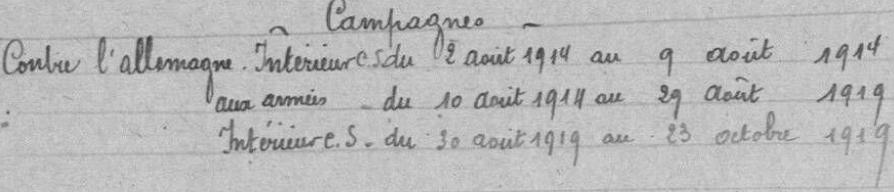 Campagnes
Contre l'allemagne. Intérieur C.S du 2 août 1914 au 9 août 1914
aux armées - du 10 août 1914 au 29 août 1919
Intérieur C.S. du 30 août 1919 au 23 octobre 1919